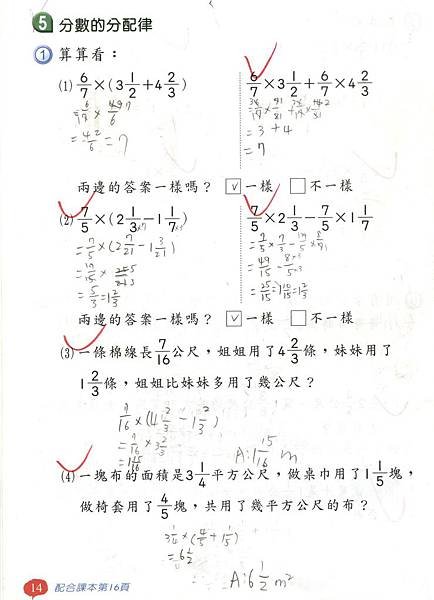 5 分數的分配律
1 算算看：
(1) 6/7×(3 1/2+4 2/3) 6/7×3 1/2+6/7×4 2/3
=3+4
=42/6=7
=7
兩邊的答案一樣嗎？ ☑一樣 □不一樣
(2) 7/5×(2 1/3-1 1/7) 7/5×2 1/3-7/5×1 1/7
=7/5×(2 7/21-1 3/21) =7/5×7/3-7/5×8/7
=49/15-8×3/5×3
=5/3=1 2/3 =25/15=1 10/15=1 2/3
兩邊的答案一樣嗎？ ☑一樣 □不一樣
(3) 一條棉線長7/16公尺，姐姐用了4 2/3條，妹妹用了
1 2/3條，姐姐比妹妹多用了幾公尺？
×(4 2/3-1 2/3)
A:1 15/16 m
(4) 一塊布的面積是3 1/4平方公尺，做桌巾用了1 1/5塊，
做椅套用了4/5塊，共用了幾平方公尺的布？
3 1/4×(4/5+1 1/5)
=6 1/2
A:6 1/2 m²
14 配合課本第16頁